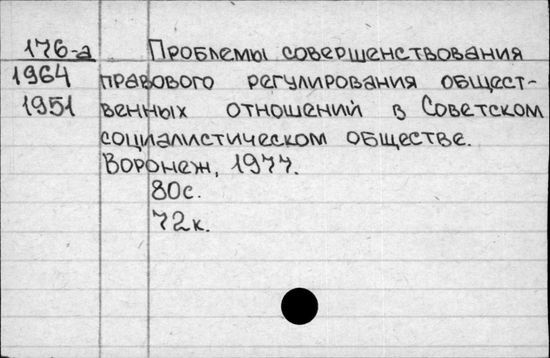 176-а Проблемы совершенствования
1964 правового регулирования общест-
1951 венных отношений в Советском
социалистическом обществе.
Воронеж, 1977.
80с.
72к.